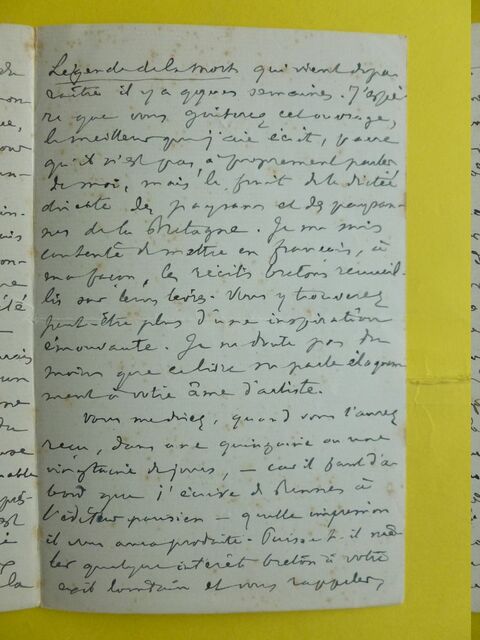 Légende de la Mort qui vient de pa
raître il y a qques semaines. J'espè
re que vous goûterez cet ouvrage,
le meilleur que j'aie écrit, parce
qu'il n'est pas à proprement parler
de moi, mais le fruit de la dictée
directe des paysans et des paysan-
nes de la Bretagne. Je me suis
contenté de mettre en français, à
ma façon, les récits bretons recueil-
lis sur leurs lèvres. Vous y trouverez
peut-être plus d'une inspiration
émouvante. Je ne doute pas du
moins que ce livre ne parle éloquem
ment à votre âme d'artiste.
Vous me direz, quand vous l'aurez
reçu, dans une quinzaine ou une
vingtaine de jours, — car il faut d'a
bord que j'écrive de Rennes à
l'éditeur parisien — quelle impression
il vous aura produite. Puisse-t-il mê
ler quelque intérêt breton à votre
exil lointain et vous rappeler,